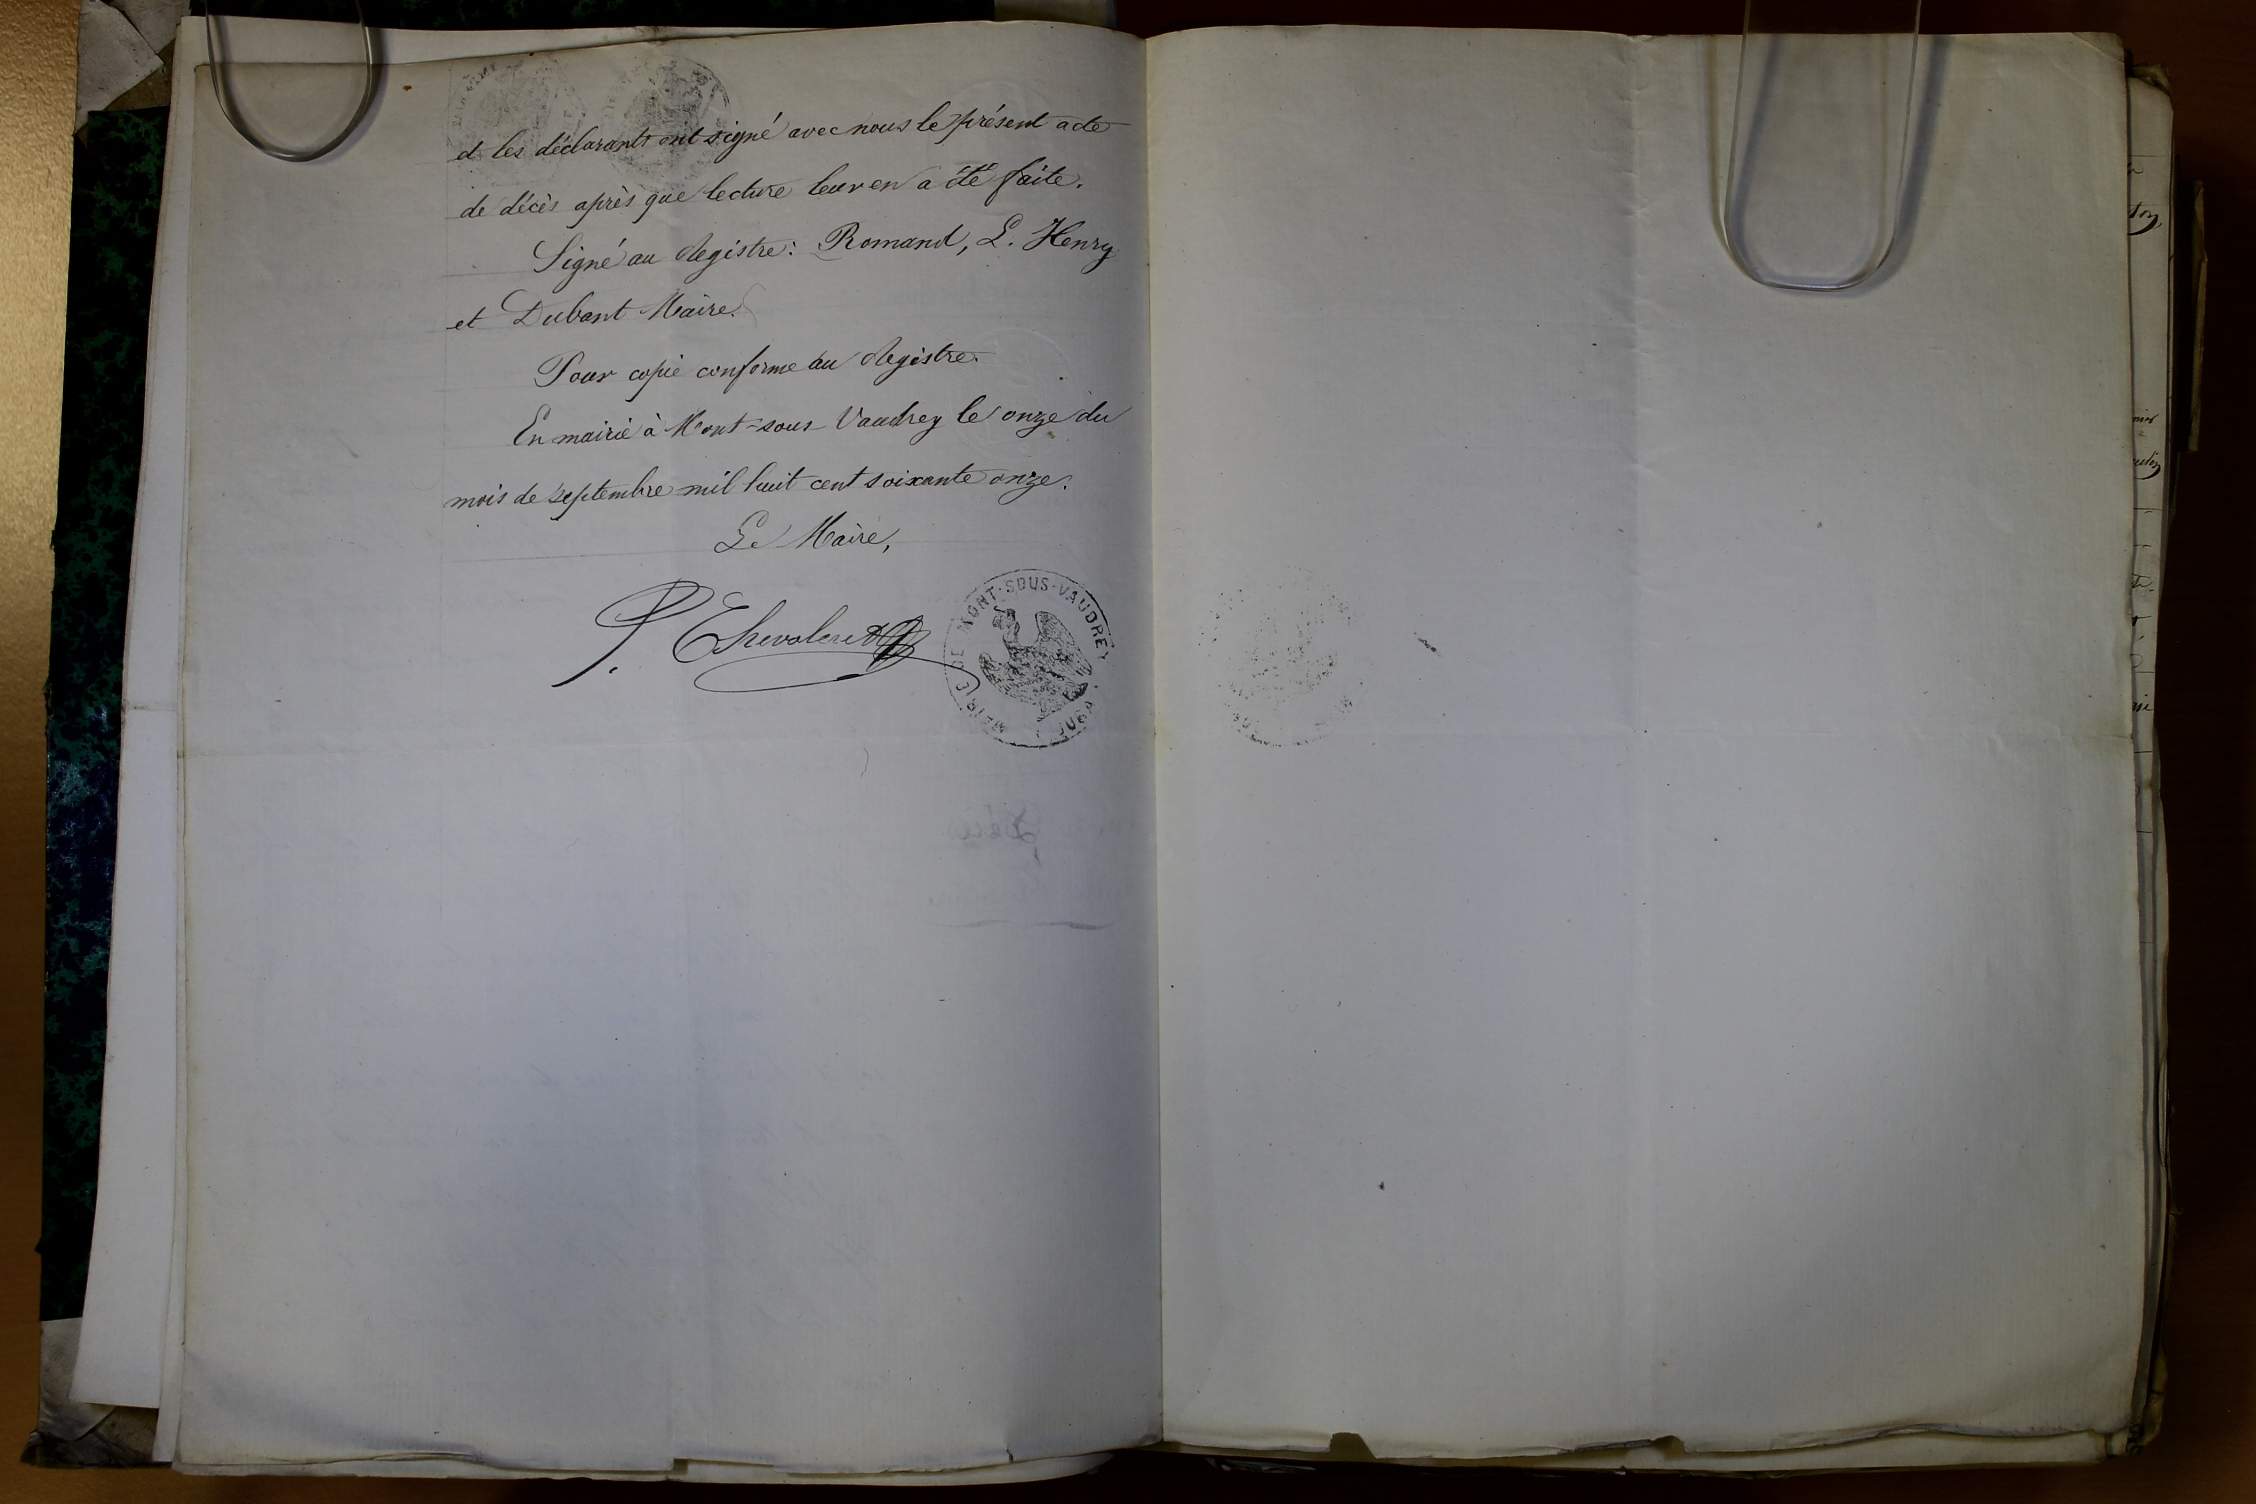 et les déclarants ont signé avec nous le présent acte
de décès après que lecture leur en a été faite.
Signé au Registre: Romand, L. Henry
et Dubant Maire.
Pour copie conforme au Registre.
En mairie à Mont-sous-Vaudrey le onze du
mois de septembre mil huit cent soixante onze.
Le Maire,
MAIRIE DE MONT-SOUS-VAUDREY